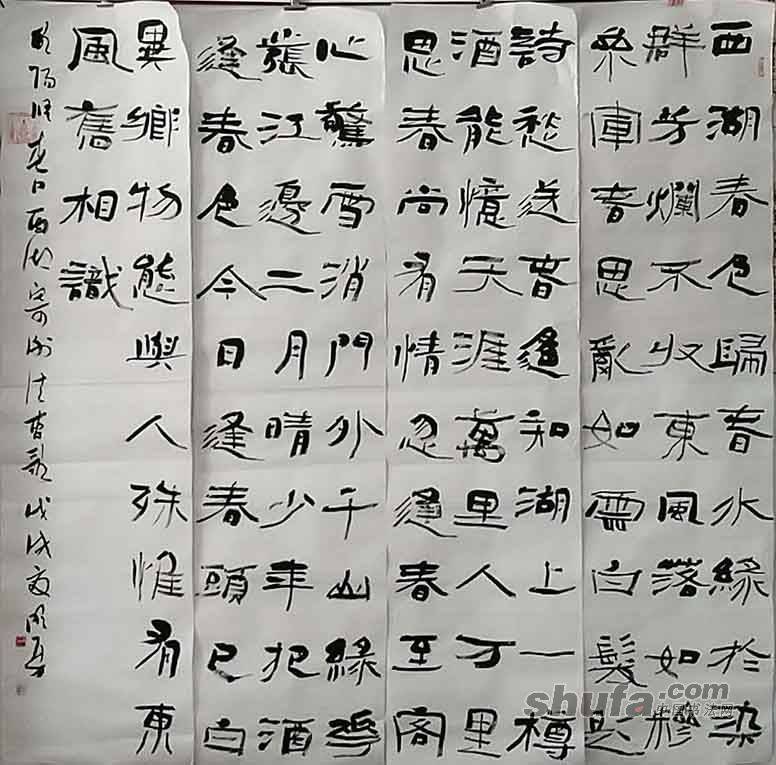 西湖春色歸春水綠於染
群芳爛不收東風落如糝
參軍春思亂如雲白髮題
詩愁送春遥知湖上一樽
酒能憶天涯萬里人万里
思春尚有情忽逢春至客
心驚雪消門外千山綠花
發江邊二月晴少年把酒
逢春色今日逢春頭已白
異鄉物態與人殊惟有東
風舊相識
欧陽修春日西湖寄谢法曹歌戊戌夏
shufa.com
中国书法网